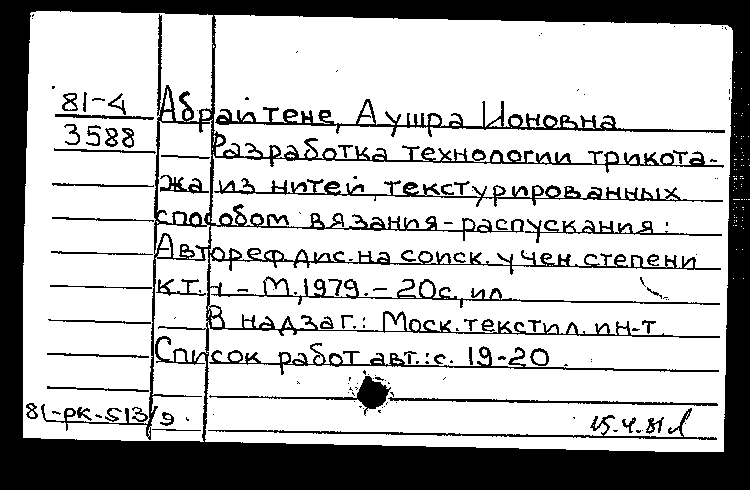 81-4 Абрайтене, Аушра Ионовна
3588 Разработка технологии трикота-
жа из нитей, текстурированных
способом вязания-распускания:
Автореф дис. на соиск. учен. степени
к.т.н - М., 1979. - 20с, ил.
В надзаг.: Моск. текстил. ин-т.
Список работ авт.: с. 19-20.
81-рк-513/9. 15.4.81